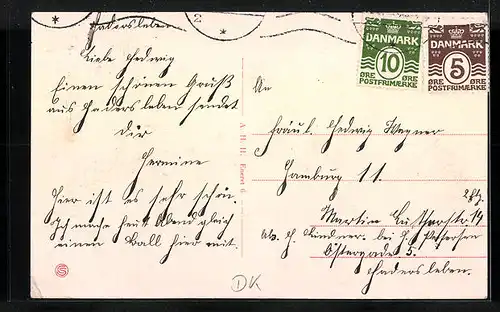 Hadersleben
2
Liebe Hedwig
Einen schönen Gruß
aus Hadersleben sendet
Dir
Hermine
Hier ist es sehr schön
Ich mache heut Abend gleich
einen Ball hier mit
DANMARK
10
ØRE ØRE
POSTFRIMÆRKE
DANMARK
5
ØRE ØRE
POSTFRIMÆRKE
An
Fräul. Hedwig Wegner
Hamburg 11.
Martin Lutherstr. 19
Abs. H. Lindner. bei
Östergade 5.
Hadersleben.
A. H. H.
S
DK